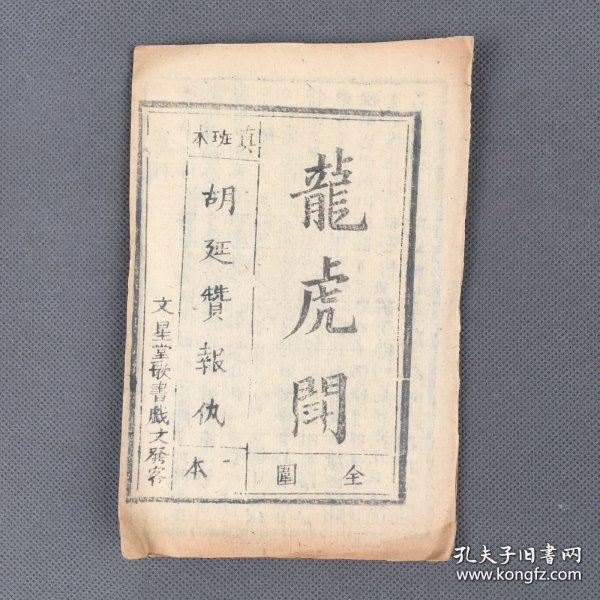 龍虎鬪
全圍
真班本
胡延贊報仇
一本
文星堂歌書戲文發客
孔夫子旧书网
www.kongfz.com